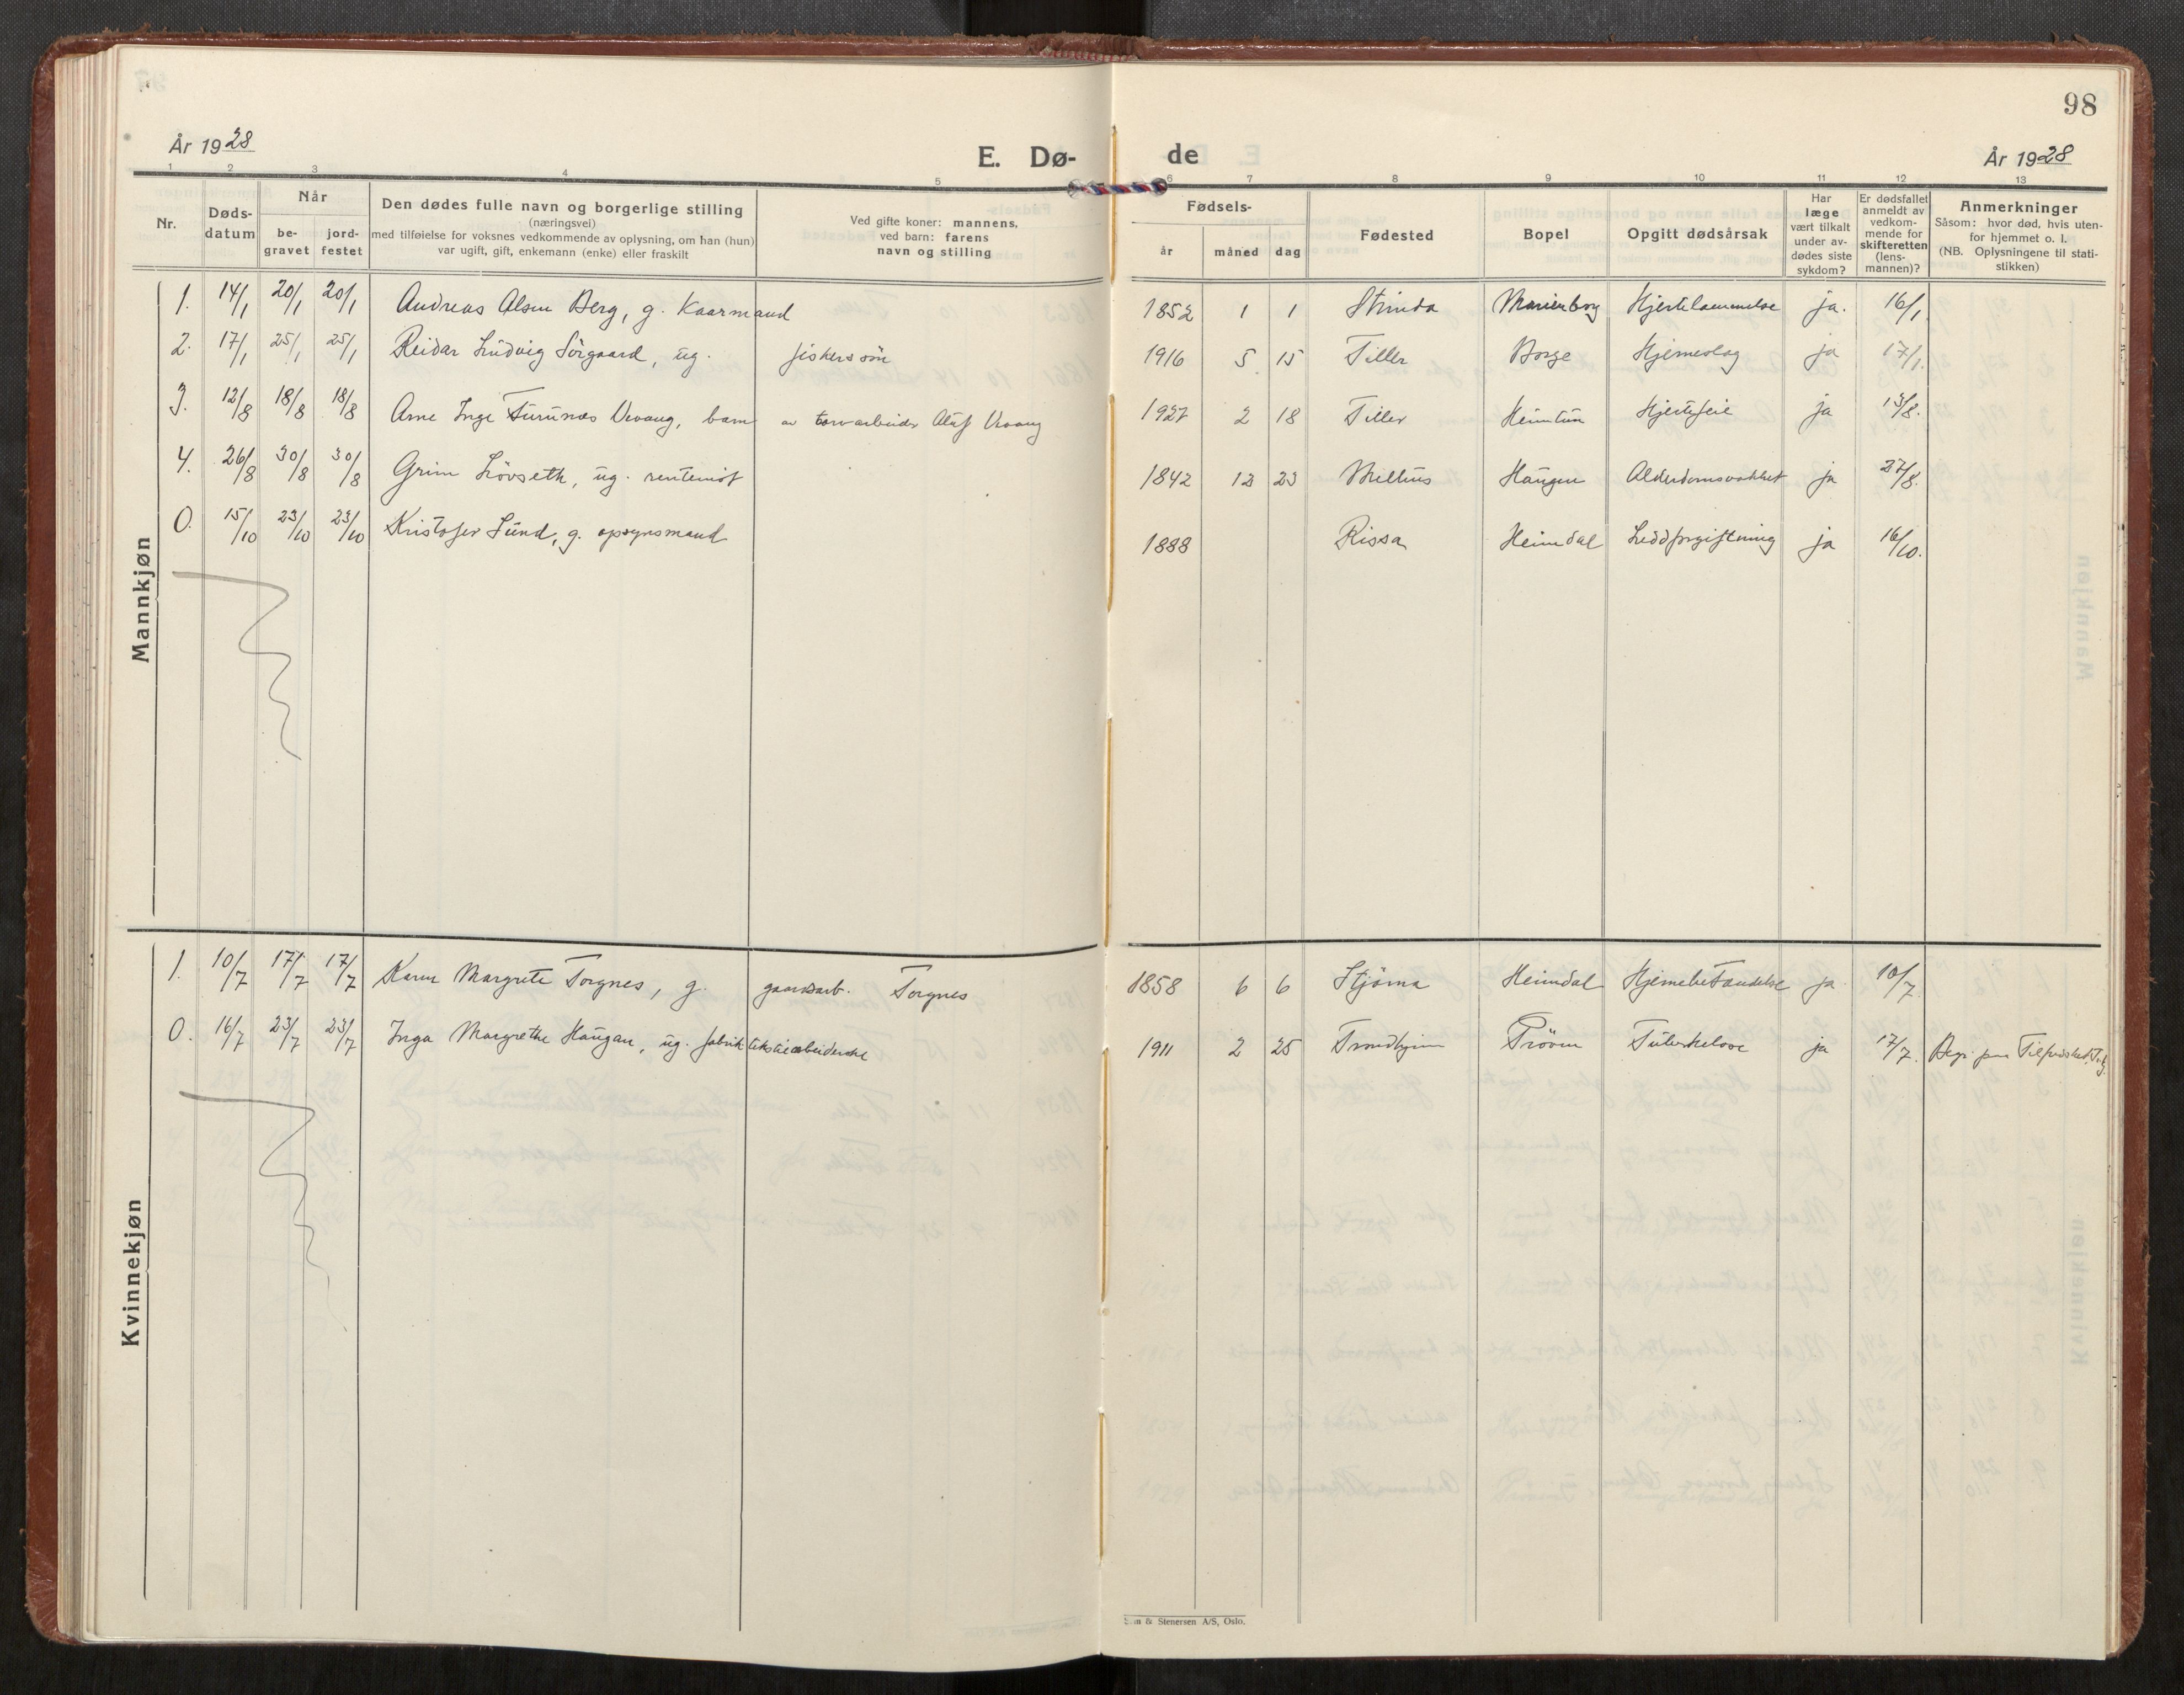 98
År 1928
E. Dø-
de
År 1928
1 2 3 4 5 6 7 8 9 10 11 12 13
Nr.
Døds-
datum
Når
be-
gravet
jord-
festet
Den dødes fulle navn og borgerlige stilling
(næringsvei)
med tilføielse for voksnes vedkommende av oplysning, om han (hun)
var ugift, gift, enkemann (enke) eller fraskilt
Ved gifte koner: mannens,
ved barn: farens
navn og stilling
Fødsels-
år måned dag
Fødested
Bopel
Opgitt dødsårsak
Har
læge
vært tilkalt
under av-
dødes siste
sykdom?
Er dødsfallet
anmeldt av
vedkom-
mende for
skifteretten
(lens-
mannen)?
Anmerkninger
Såsom: hvor død, hvis uten-
for hjemmet o. l.
(NB. Oplysningene til stati-
stikken)
Mannkjøn
1. 14/1 20/1 20/1 Andreas Olsen Berg, g. Kaarmand 1852 1 1 Strinda Marienborg Hjertelammelse ja. 16/1
2. 17/1 25/1 25/1 Reidar Ludvig Sørgaard, ug. fiskerssøn 1916 5 15 Tiller Borge Hjerneslag ja 17/1.
3. 12/8 18/8 18/8 Arne Inge Furunæs Vevang, barn av torvarbeider Olaf Vevang 1927 2 18 Tiller Heimtun Hjertefeil ja 13/8.
4. 26/8 30/8 30/8 Grim Løvseth, ug. rentenist 1842 12 23 Melhus Haugen Alderdomssvakhet ja 27/8.
0. 15/10 23/10 23/10 Kristofer Lund, g. opsynsmand 1888 Rissa Heimdal Leddforgiftning ja 16/10.
Kvinnekjøn
1. 10/7 17/7 17/7 Karen Margrete Torgnes, g. gaardsarb. Torgnes 1858 6 6 Stjørna Heimdal Hjernebetændelse ja 10/7
0. 16/7 23/7 23/7 Inga Margrethe Haugan, ug. fabrik tekstilarbeiderske 1911 2 25 Trondhjem Prøven Tuberkelose ja 17/7. Begr. paa Tilfredshet, Trhj.
Sem & Stenersen A/S, Oslo.